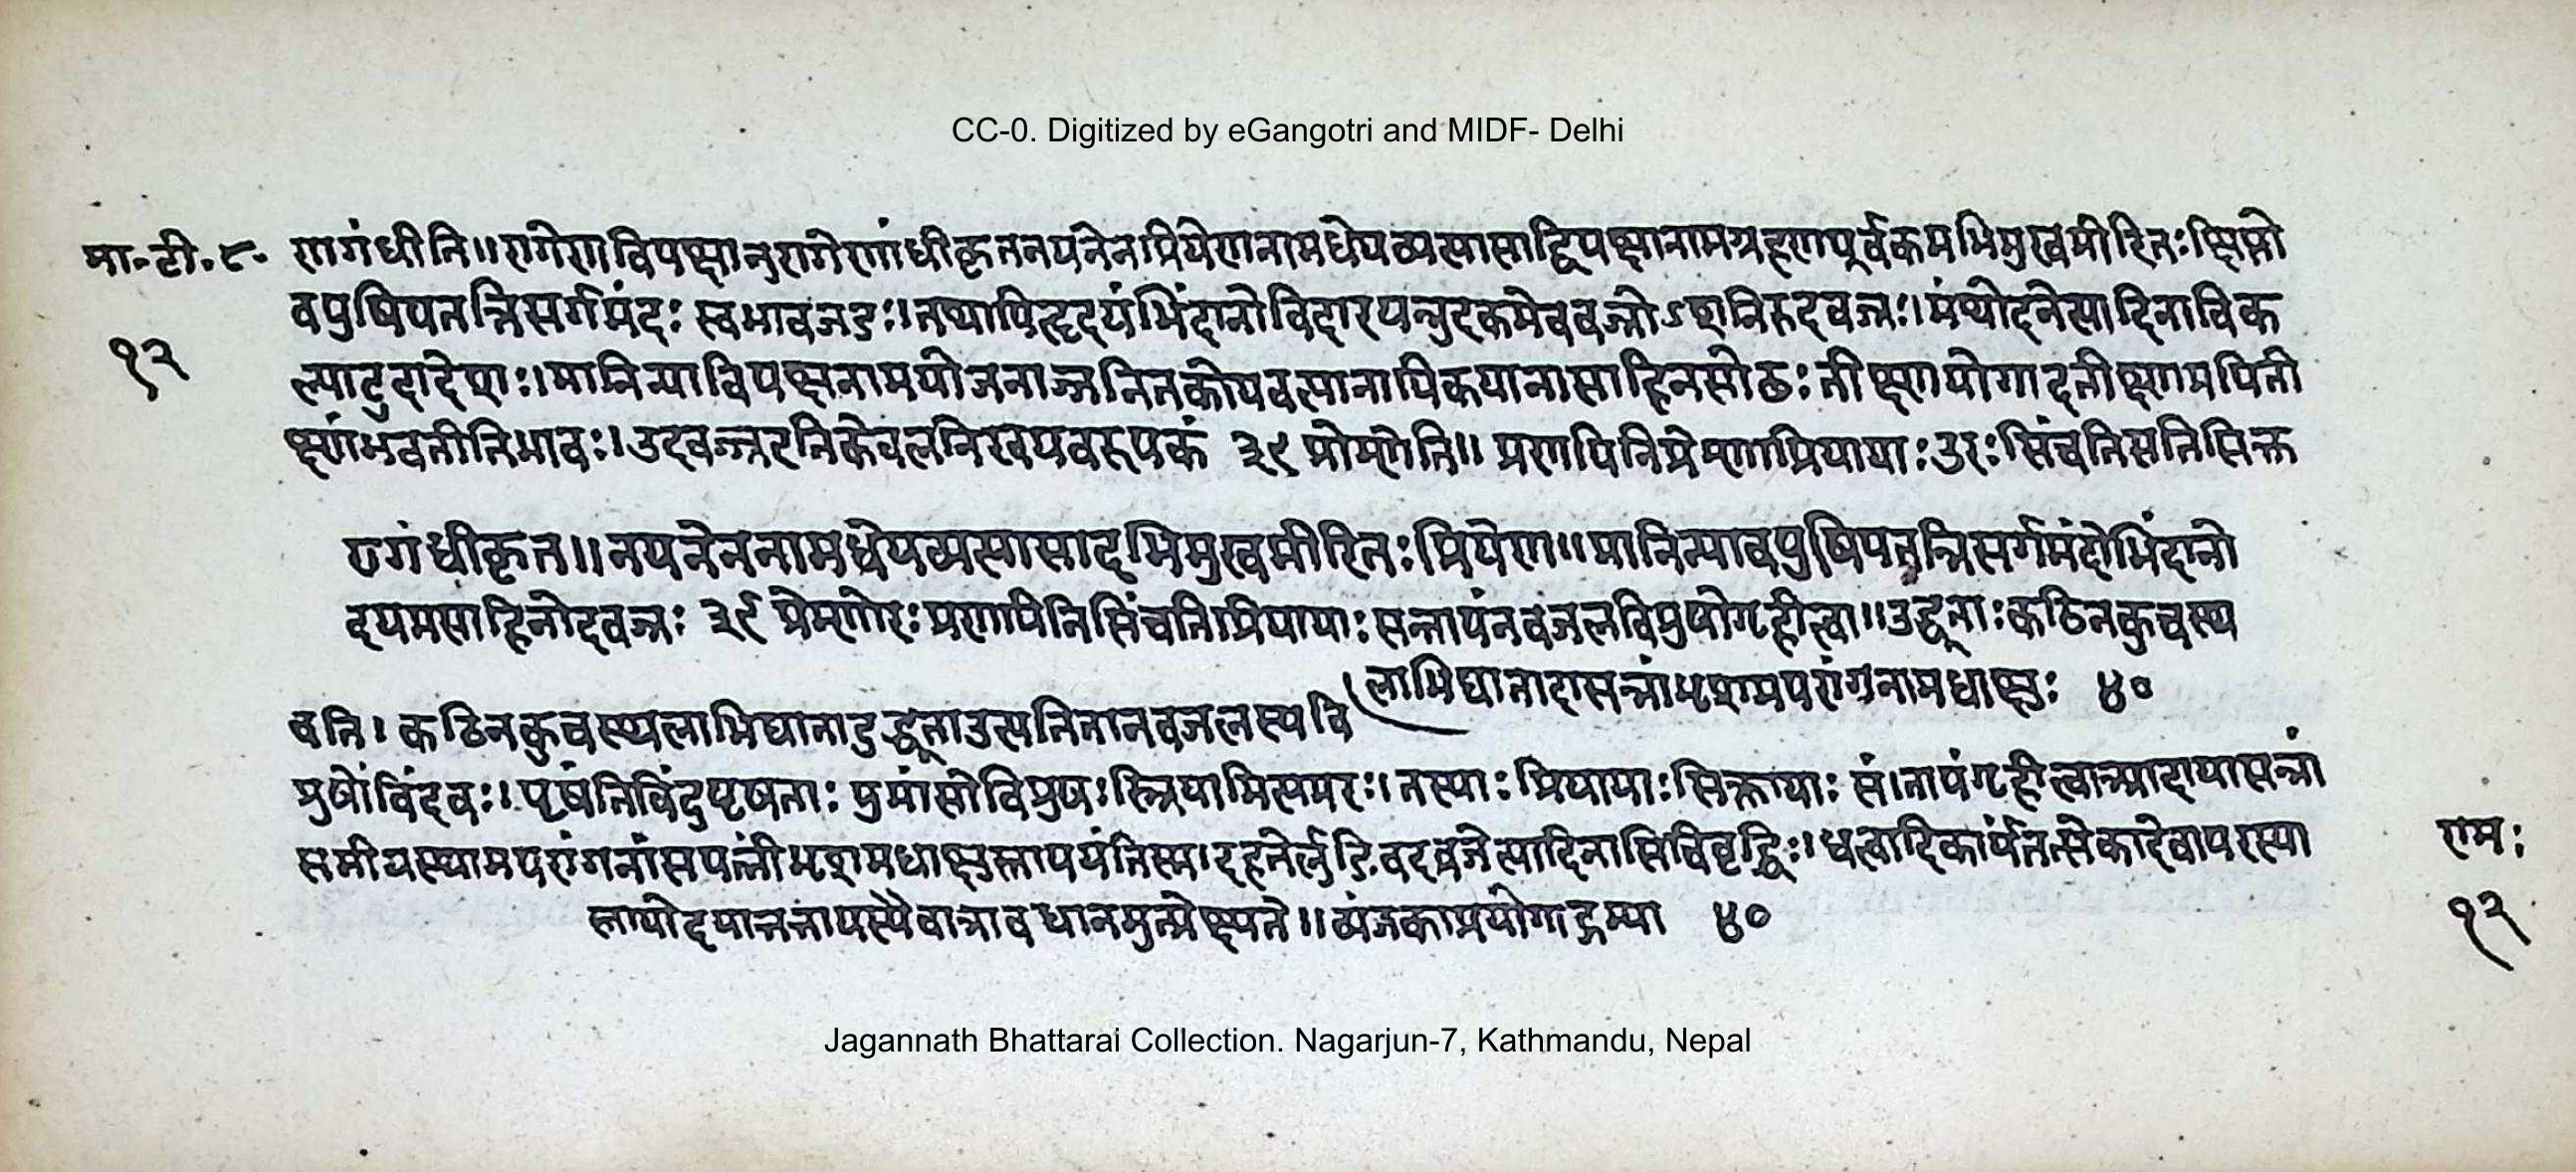 CC-0. Digitized by eGangotri and MIDF- Delhi
मा॰टी॰८॰ रागांधीति॥ रागेण विपक्षानुरागेणांधीकृतनयनेन प्रियेण नामधेयव्यत्यासाद्विपक्षानामग्रहणपूर्वकमभिमुखमीरितः क्षिप्तो
१२
वपुषिपतन्निसर्गमंदः स्वभावजडः। तथापि हृदयं भिंदानो विदारयन्नुदकमेव वज्रोऽशनिरुदवज्रः। मंथोदनेत्यादिना विक
ल्पादुदादेशः। मानिन्या विपक्षनामयोजनाज्जनितकोपवत्यानायिकयानासाहिनसोढः तीक्ष्णयोगादतीक्ष्णमपिती
क्ष्णंभवतीतिभावः। उदवज्रइतिकेवलनिरवयवरूपकं ३९ प्रेम्णेति॥ प्रणयिनिप्रेम्णाप्रियायाः उरः सिंचतिसतिसिक्त
रागांधीकृत॥ नयनेननामधेयव्यत्यासादभिमुखमीरितः प्रियेण॥ मानिन्यावपुषिपतन्निसर्गमंदोभिंदानो
दयमसाहिनोदवज्रः ३९ प्रेम्णोरः प्रणयिनिसिंचतिप्रियायाः सन्तापंनवजलविप्रुषोगृहीत्वा॥ उद्धूताः कठिनकुचस्थ
लाभिघातादासन्नांभृशमपरांगनामधाक्षुः ४०
वति। कठिनकुचस्थलाभिघातादुद्धूताउत्पतितानवजलस्यवि
प्रुषोबिंदवः। पृषंतिबिंदुपृषताः पुमांसोविप्रुषः स्त्रियामित्यमरः। तस्याः प्रियायाः सिक्तायाः संतापंगृहीत्वाआदायासन्नां
समीपस्थामपरांगनांसपत्नींभृशमधाक्षुस्तापयंतिस्म। दहतेर्लुङिवदव्रजेत्यादिनासिचिवृद्धिः।
राम:
१२
४०
Jagannath Bhattarai Collection. Nagarjun-7, Kathmandu, Nepal